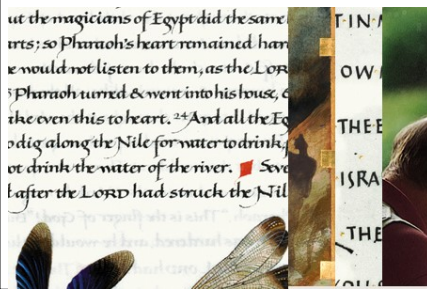 ut the magicians of Egypt did the same
rts; so Pharaoh's heart remained har
e would not listen to them, as the LOR
Pharaoh turned & went into his house, &
ake even this to heart. 24 And all the Eg
o dig along the Nile for water to drink,
ot drink the water of the river. Seve
d after the LORD had struck the Nil
T·IN
OW
THE E
ISRA
THE